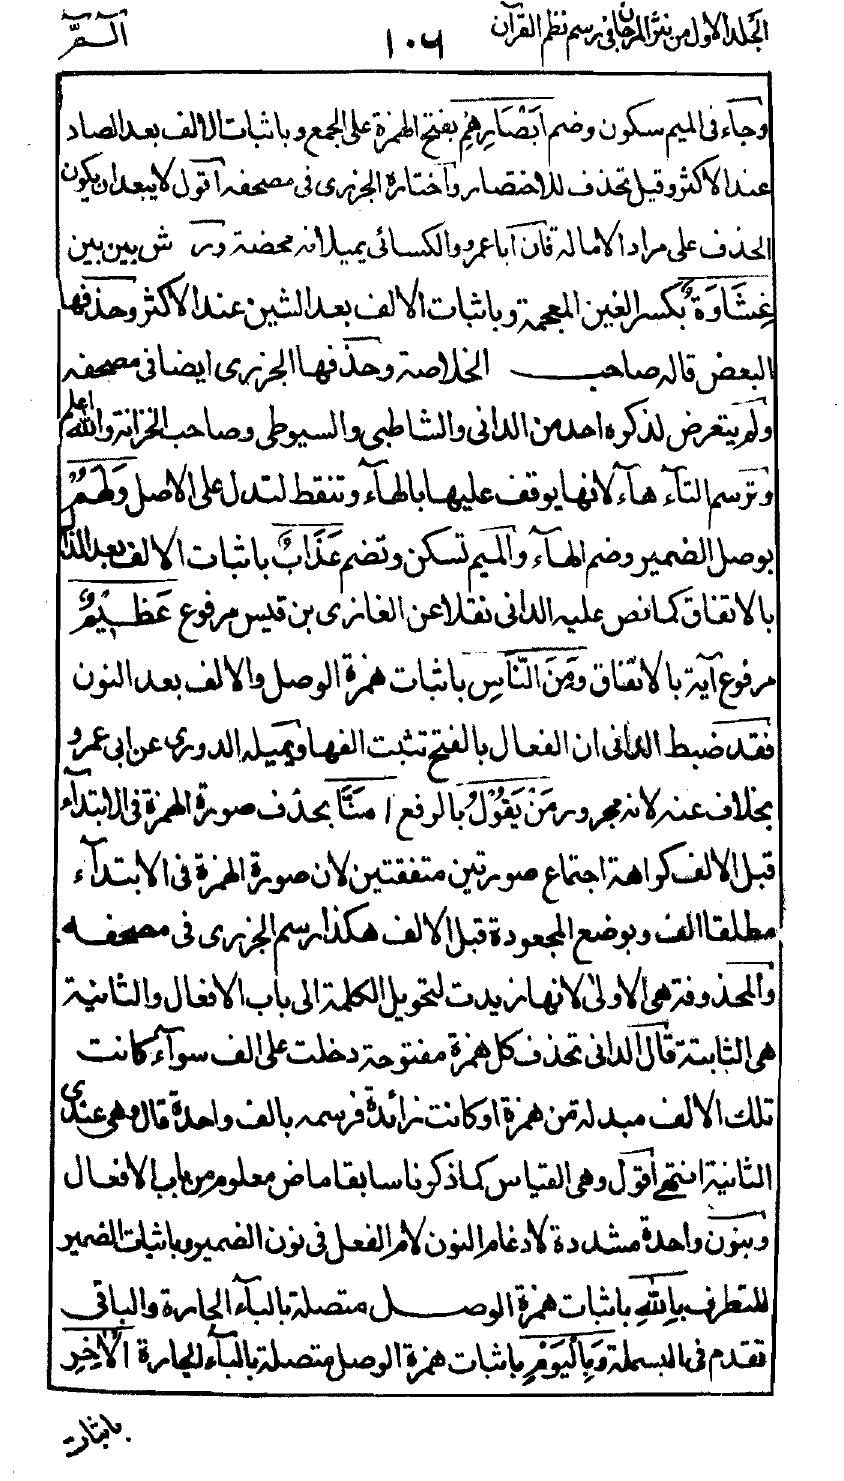 الجلد الاول من نثر المرجان فى رسم نظم القرآن
١٠٦
الٓمّٓ
وجاء فى الميم سكون وضم اَبْصَارِهِمْ بفتح الهمزة على الجمع وباثبات الالف بعد الصاد
عند الاكثر وقيل تحذف للاختصار واختاره الجزرى فى مصحفه اقول لا يبعد ان يكون
الحذف على مراد الامالة فان ابا عمرو والكسائى يميلانه محضة وورش بين بين
غِشَاوَةٌ بكسر الغين المعجمة وباثبات الالف بعد الشين عند الاكثر وحذفها
البعض قاله صاحب الخلاصة وحذفها الجزرى ايضا فى مصحفه
ولم يتعرض لذكره احد من الدانى والشاطبى والسيوطى وصاحب الخزانة والله اعلم
وترسم التآء هآء لانها يوقف عليها بالهآء وتنقط لتدل على الاصل وَلَهُمْ
بوصل الضمير وضم الهآء والميم تسكن وتضم عَذَابٌ باثبات الالف بعد الذال
بالاتفاق كما نص عليه الدانى نقلا عن الغازى بن قيس مرفوع عَظِيْمٌ
مرفوع آية بالاتفاق وَمِنَ النَّاسِ باثبات همزة الوصل والالف بعد النون
فقد ضبط الدانى ان الفعال بالفتح تثبت الفها ويميله الدورى عن ابى عمرو
بخلاف عنه لانه مجرور مَنْ يَقُوْلُ بالرفع اٰمَنَّا بحذف صورة الهمزة فى الابتدآء
قبل الالف كراهة اجتماع صورتين متفقتين لان صورة الهمزة فى الابتدآء
مطلقا الف وبوضع المجعودة قبل الالف هكذا رسم الجزرى فى مصحفه
والمحذوفة هى الاولى لانها زيدت لتحويل الكلمة الى باب الافعال والثانية
هى الثابتة قال الدانى تحذف كل همزة مفتوحة دخلت على الف سوآء كانت
تلك الالف مبدلة من همزة او كانت زائدة فرسمه بالف واحدة قال وهى عندى
الثانية انتهى اقول وهى القياس كما ذكرنا سابقا ماض معلوم من باب الافعال
وبنون واحدة مشددة لادغام النون لام الفعل فى نون الضمير وباثبات الضمير
للتطرف بِاللهِ باثبات همزة الوصل متصلة بالبآء الجارة والباقى
تقدم فى البسملة وَبِالْيَوْمِ باثبات همزة الوصل متصلة بالبآء الجارة الْاٰخِرِ
باثبات